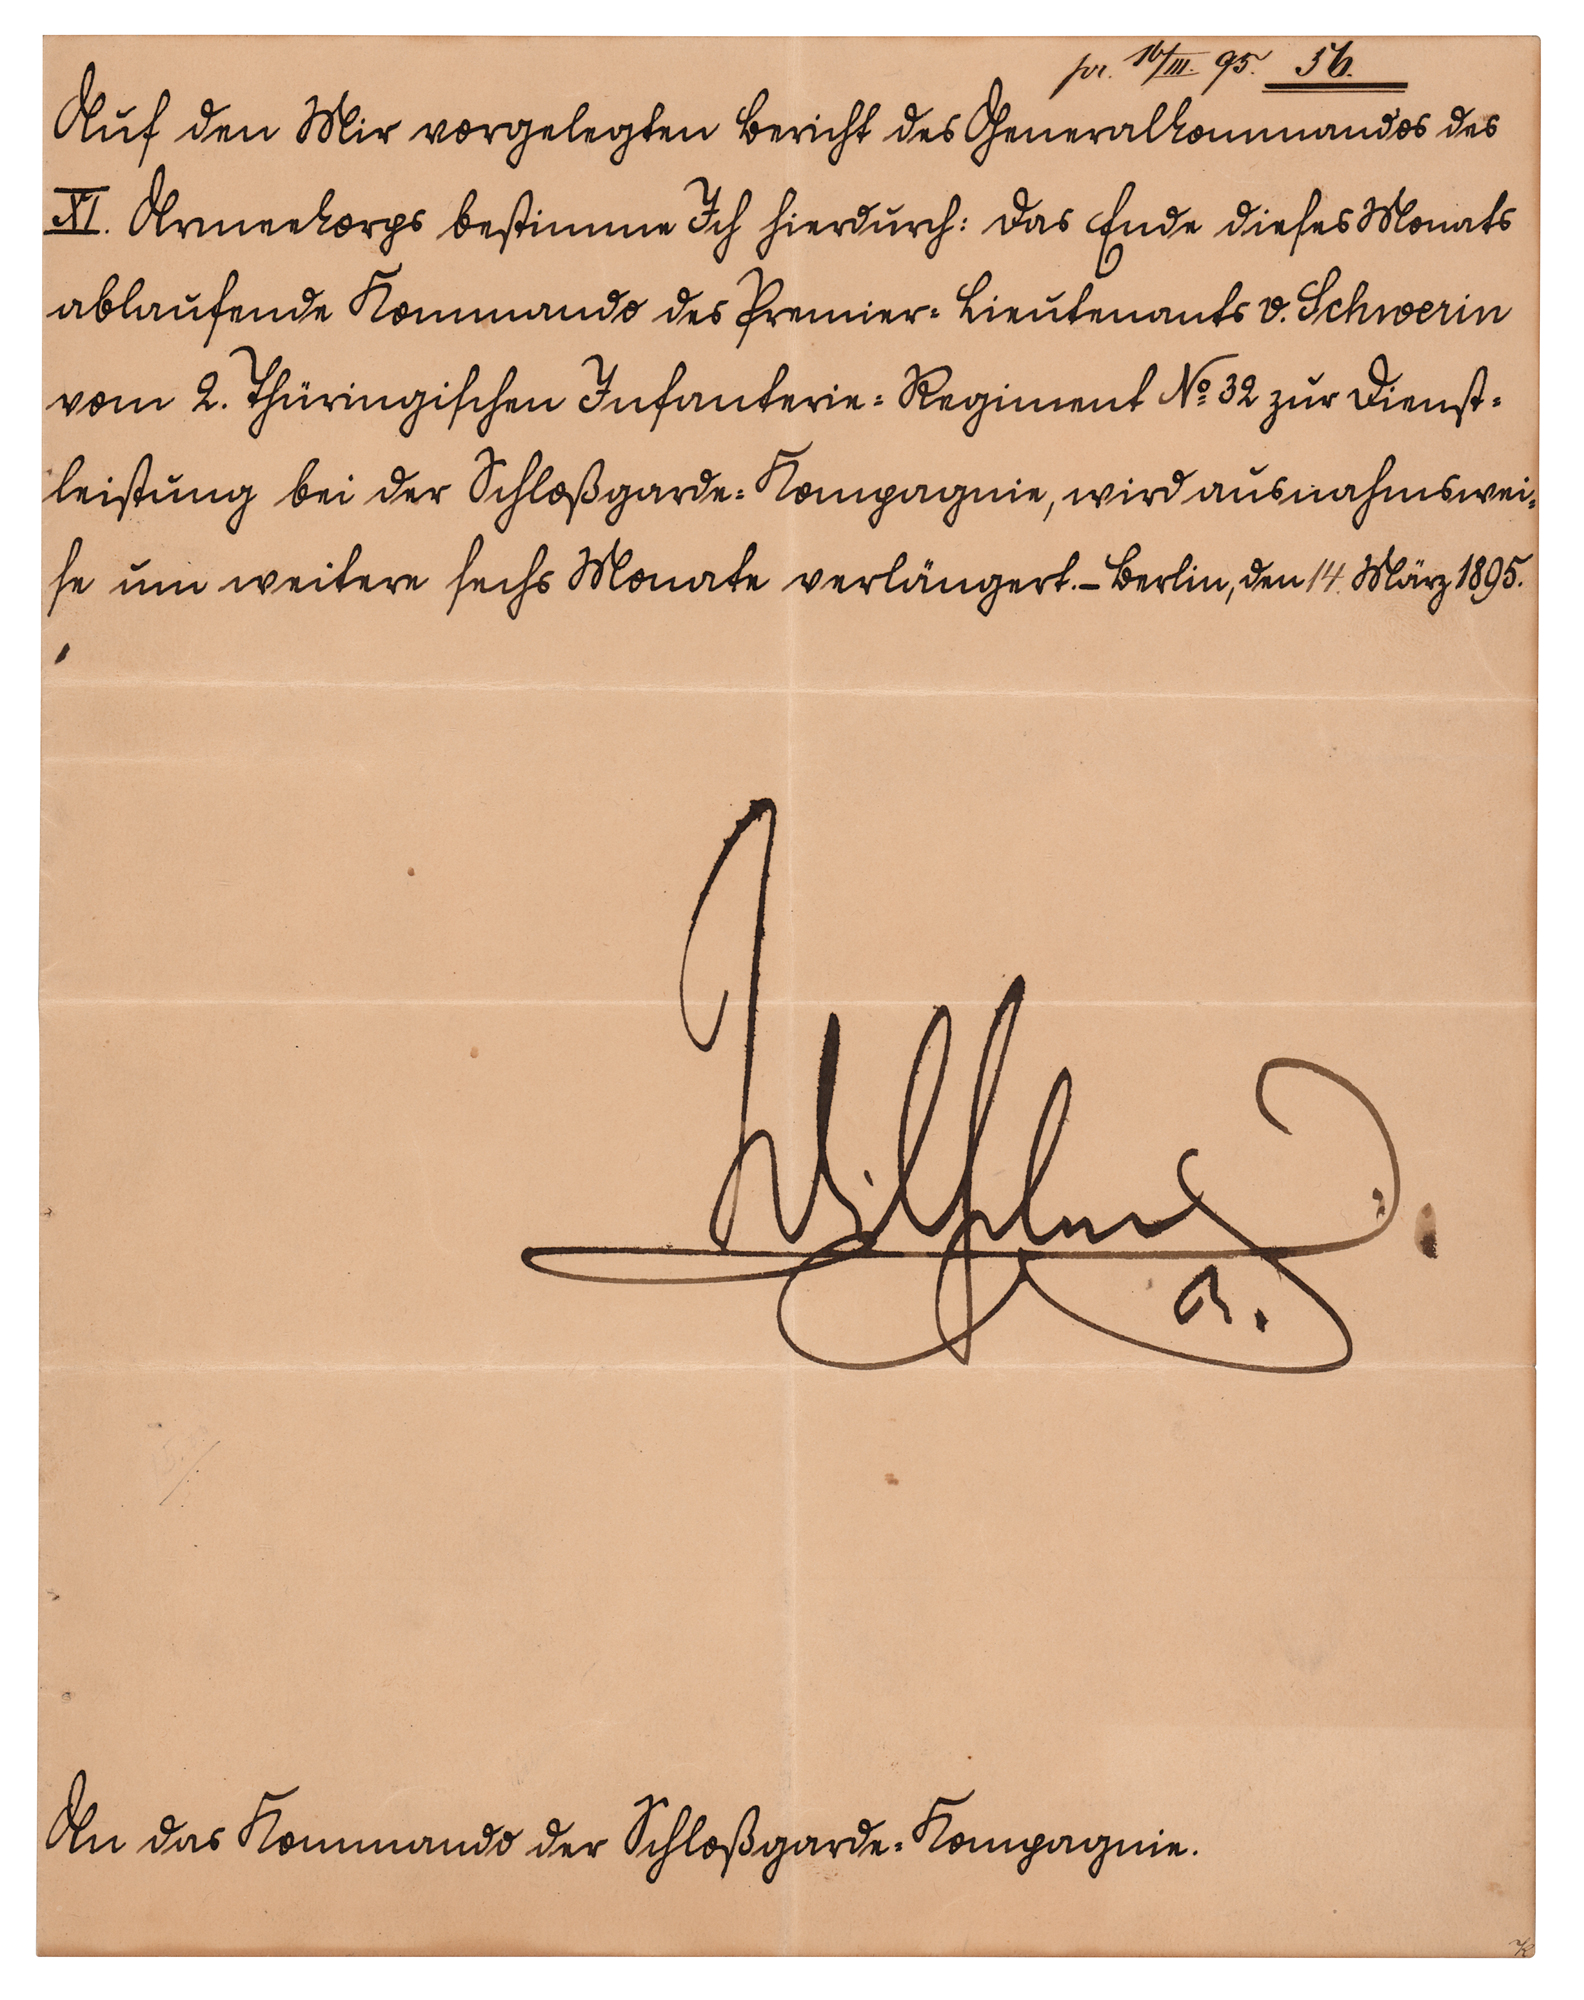 pr. 16/III. 95. 56.
Auf den Mir vorgelegten Bericht des Generalkommandos des
XI. Armeekorps bestimme Ich hierdurch: Das Ende dieses Monats
ablaufende Kommando des Premier-Lieutenants v. Schwerin
vom 2. Thüringischen Infanterie-Regiment No 32 zur Dienst-
leistung bei der Schloßgarde-Kompagnie, wird ausnahmswei-
se um weitere sechs Monate verlängert.– Berlin, den 14. März 1895.
Wilhelm
R.
An das Kommando der Schloßgarde-Kompagnie.